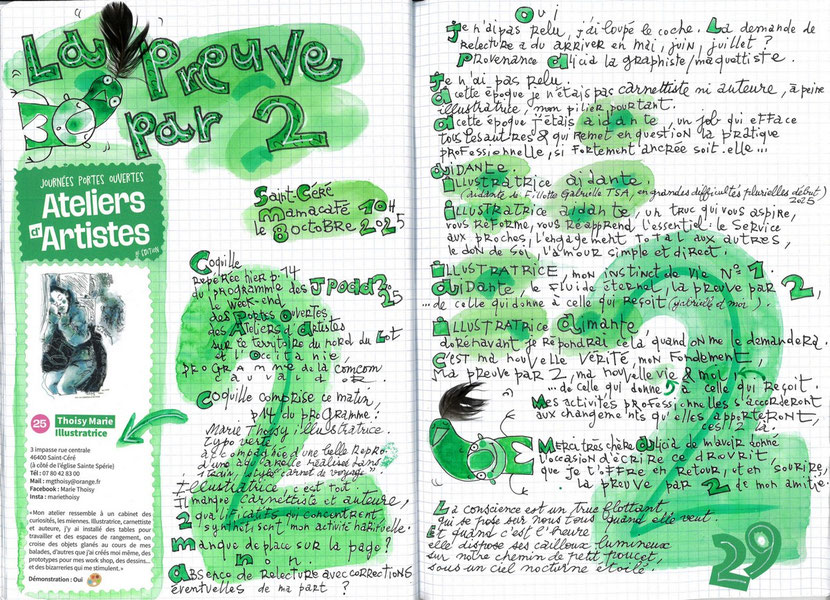 La Preuve
par 2
JOURNÉES PORTES OUVERTES
Ateliers
d'Artistes
25
Thoisy Marie
Illustratrice
3 impasse rue centrale
46400 Saint-Céré
(à côté de l'église Sainte Spérie)
Tél : 07 80 42 83 00
Mail : mgthoisy@orange.fr
Facebook : Marie Thoisy
Insta : mariethoisy
« Mon atelier ressemble à un cabinet des
curiosités, les miennes. Illustratrice, carnettiste
et auteure, j'y ai installé des tables pour
travailler et des espaces de rangement, on
croise des objets glanés au cours de mes
balades, d'autres que j'ai créés moi même, des
prototypes pour mes work shop, des dessins...
et des bizarreries qui me stimulent. »
Démonstration : Oui
Saint-Céré
Mamacafé 10H
le 8 octobre 2025
Coquille
repérée hier p.14
du programme des JPODA 2025
le week-end
des Portes Ouvertes
des Ateliers d'Artistes
sur le territoire du nord du Lot
et l'Occitanie
programme de la comcom
Cauvaldor.
Coquille comprise ce matin,
p14 du programme:
Marie Thoisy illustratrice.
typo verte
accompagnée d'une belle repro
d'une aquarelle réalisée dans
Illustratrice c'est tout,
Il manque carnettiste et auteure,
2 qualificatifs qui concentrent,
synthétisent mon activité habituelle.
manque de place sur la page?
non.
absence de relecture avec corrections
éventuelles de ma part ?
Oui
Je n'ai pas relu, j'ai loupé le coche. La demande de
relecture a dû arriver en mai, juin, juillet ?
Provenance Alicia la graphiste/maquettiste.
Je n'ai pas relu.
à cette époque je n'étais pas carnettiste ni auteure, à peine
illustratrice, mon pilier pourtant.
à cette époque j'étais aidante, un job qui efface
tous les autres & qui remet en question la pratique
professionnelle, si fortement ancrée soit-elle...
aidante.
Illustratrice aidante.
(aidante de Fillotte Gabrielle TSA, en grandes difficultés plurielles début 2025)
Illustratrice aidante, un truc qui vous aspire,
vous réforme, vous réapprend l'essentiel: le service
aux proches, l'engagement total aux autres,
le don de soi, l'amour simple et direct.
Illustratrice, mon instinct de vie N° 1.
aidante, le fluide éternel, la preuve par 2,
... de celle qui donne à celle qui reçoit (gabrielle et moi).
Illustratrice aimante
dorénavant je répondrai cela, quand on me le demandera.
C'est ma nouvelle vérité, mon fondement,
ma preuve par 2, ma nouvelle vie & moi
... de celle qui donne à celle qui reçoit.
Mes activités professionnelles s'accorderont
aux changements qu'elles apporteront,
ces 2 là.
Merci très chère Alicia de m'avoir donné
l'occasion d'écrire ce
que je t'offre en retour, et en sourire,
la preuve par 2 de mon amitié.
La conscience est un truc flottant,
qui se pose sur nous tous quand elle veut.
Et quand c'est l'heure
elle dispose ses cailloux lumineux
sur notre chemin de petit poucet,
sous un ciel nocturne étoilé.
29